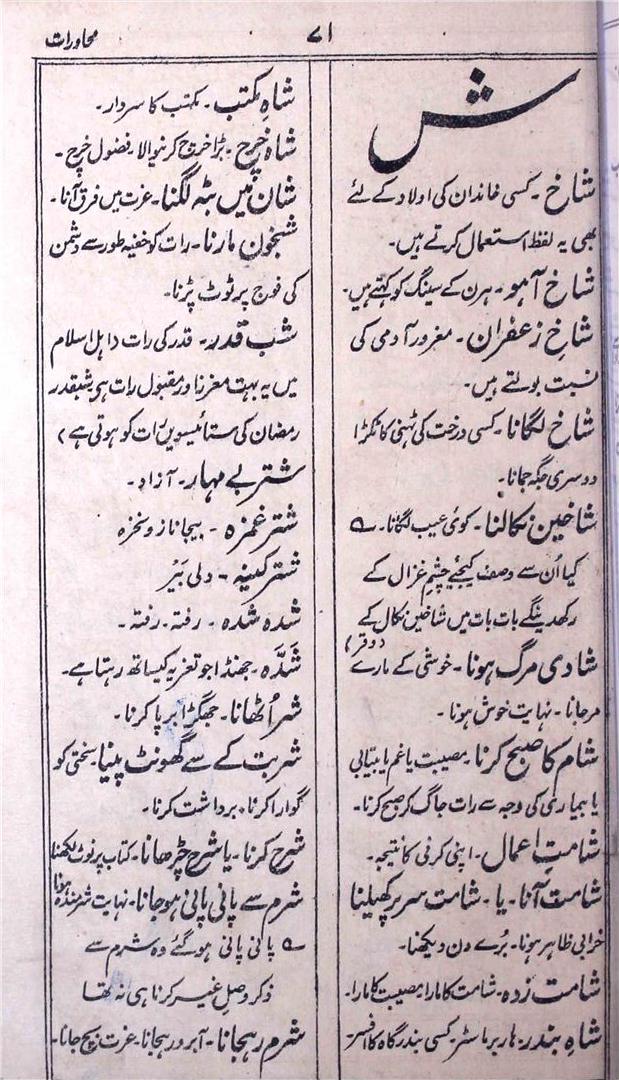 محاورات
۷۱
ش
شاخ۔ کسی خاندان کی اولاد کے لئے
بھی یہ لفظ استعمال کرتے ہیں۔
شاخِ آہو۔ ہرن کے سینگ کو کہتے ہیں۔
شاخِ زعفران۔ مغرور آدمی کی
نسبت بولتے ہیں۔
شاخ لگانا۔ کسی درخت کی ٹہنی کا ٹکڑا
دوسری جگہ جمانا۔
شاخین نکالنا۔ کوئی عیب لگانا۔ ے
کیا اُن سے وصف کیجئے چشمِ غزال کے
رکھدینگے بات بات میں شاخین نکال کے
شادی مرگ ہونا۔ خوشی کے مارے
مرجانا۔ نہایت خوش ہونا۔
شام کا صبح کرنا۔ مصیبت یا غم یا بیتابی
یا بیماری کی وجہ سے رات جاگ کر صبح کرنا۔
شامتِ اعمال۔ اپنی کرنی کا نتیجہ۔
شامت آنا۔ یا۔ شامت سر پر کھیلنا
خرابی ظاہر ہونا۔ بُرے دن دیکھنا۔
شامت زدہ۔ شامت کا مارا۔ مصیبت کا مارا۔
شاہِ بندر۔ ہاربر ماسٹر۔ کسی بندرگاہ کا افسر۔
شاہِ مکتب۔ مکتب کا سردار۔
شاہ خرچ۔ بڑا خرچ کرنیوالا۔ فضول خرچ۔
شان میں بٹہ لگنا۔ عزت میں فرق آنا۔
شبخون مارنا۔ رات کو خفیہ طور سے دشمن
کی فوج پر ٹوٹ پڑنا۔
شب قدر۔ قدر کی رات (اہل اسلام
میں یہ بہت معزز اور مقبول رات ہی شبقدر
رمضان کی ستائیسویں رات کو ہوتی ہے)
شتر بے مہار۔ آزاد۔
شتر غمزہ۔ بیجا ناز و نخرہ
شتر کینہ۔ دلی بَیر
شدہ شدہ۔ رفتہ۔ رفتہ۔
شَدّہ۔ جھنڈا جو تعزیہ کیساتھ رہتا ہے۔
شر اُٹھانا۔ جھگڑا برپا کرنا۔
شربت کے سے گھونٹ پینا۔ سختی کو
گوارا کرنا۔ برداشت کرنا۔
شرح کرنا۔ یا شرح چڑھانا۔ کتاب پر نوٹ لکھنا
شرم سے پانی پانی ہو جانا۔ نہایت شرمندہ ہونا
ے پانی پانی ہو گئے وہ شرم سے
ذکر وصلِ غیر کرنا ہی نہ تھا
شرم رہجانا۔ آبرو رہجانا۔ عزت بچ جانا۔